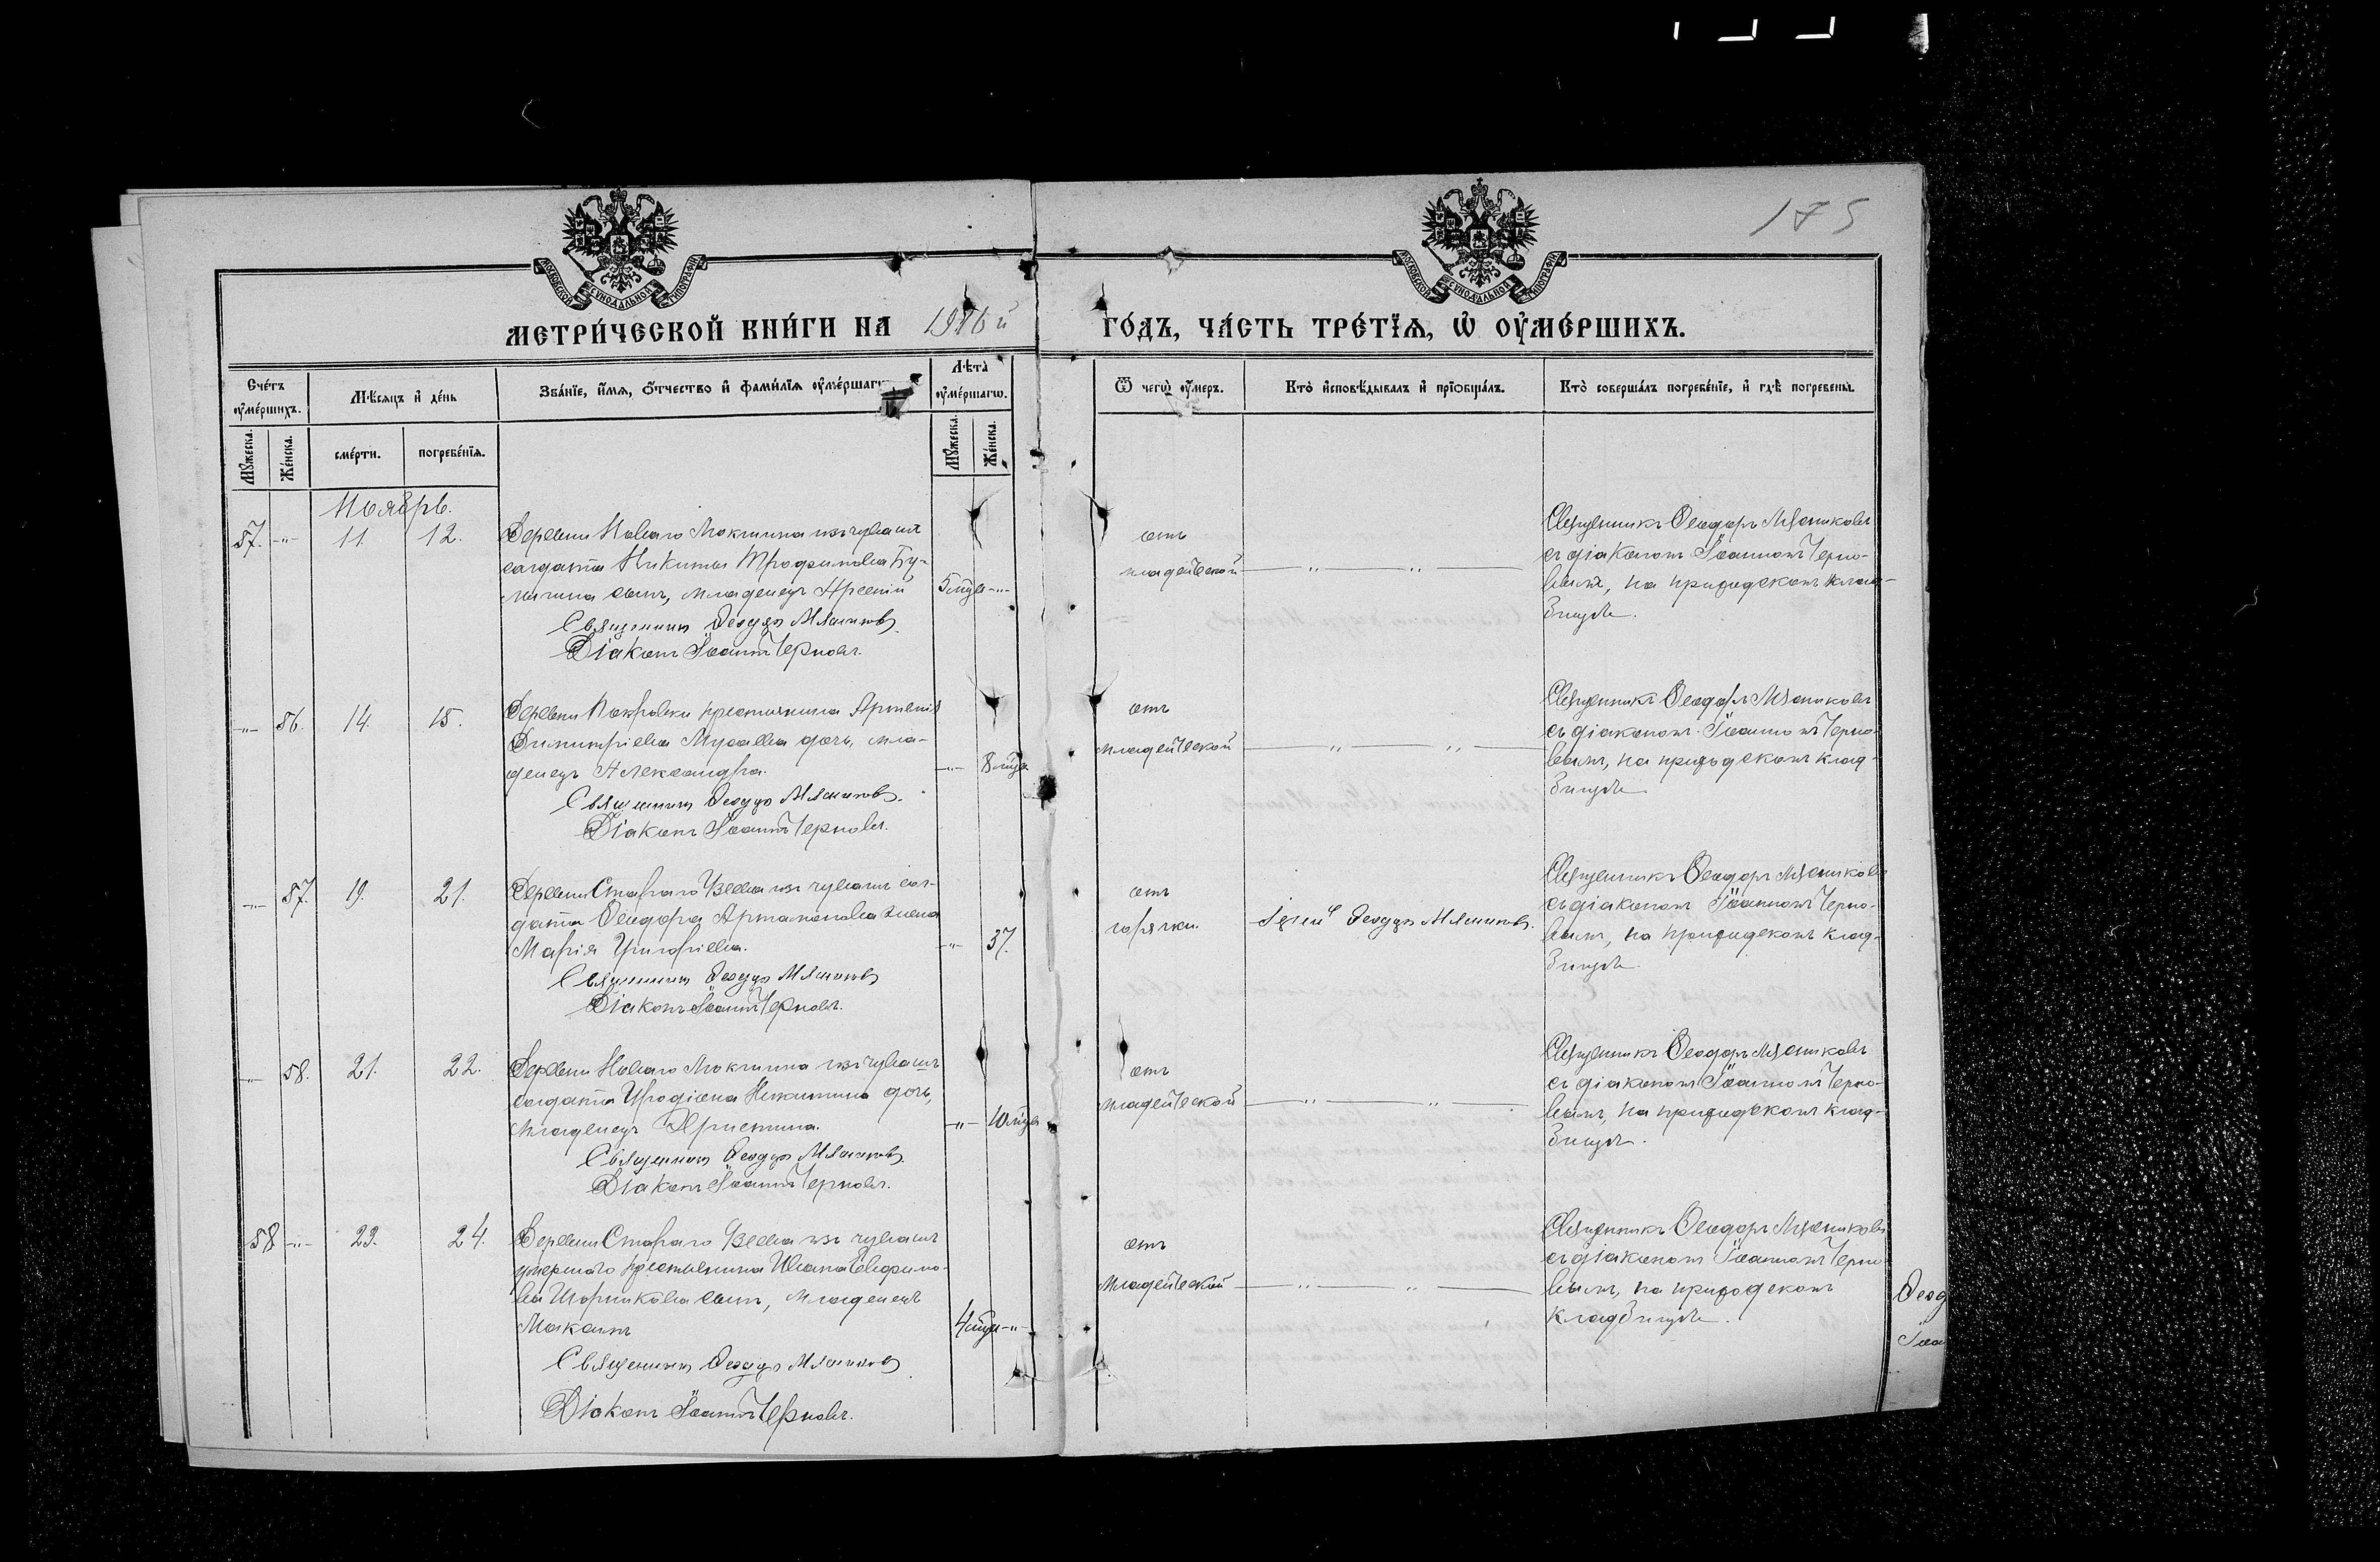 175
МОСКОВСКОЙ СУНОДАЛЬНОЙ ТИПОГРАФІИ
МОСКОВСКОЙ СУНОДАЛЬНОЙ ТИПОГРАФІИ
МЕТРИ́ЧЕСКОЙ КНИ́ГИ НА 1916й ГО́ДЪ, ЧА́СТЬ ТРЕ́ТІѦ, Ѡ ОУМЕ́РШИХЪ.
Сче́тъ оумéршихъ.
Мѣ́сяцъ и де́нь
Зва́нїе, и́мя, о́тчество и фами́лїя оумéршагѡ
Лѣта̀ оумéршагѡ.
Ѿ чегѡ̀ оу́меръ.
Кто̀ исповѣ́дывалъ и прїѡбща́лъ.
Кто̀ соверша́лъ погребе́нїе, и гдѣ̀ погребены̀.
Му́жеска.
Же́нска.
сме́рти.
погребе́нїя.
Му́жеска.
Же́нска.
Ноябрь.
57. -"- 11. 12.
Деревни Новаго Мокшина изъ чувашъ
солдата Никиты Трофимова
сынъ, младенецъ Арсеній
5 мца -"-
Священникъ Ѳеодоръ Мясниковъ
Діаконъ Іоаннъ Черновъ.
отъ
младенческой
Священникъ Ѳеодоръ Мясниковъ
съ діакономъ Іоанномъ Черно-
вымъ, на приходскомъ клад-
бищѣ.
-"- 56. 14. 15.
Деревни Покровки крестьянина Артемія
Димитріева Мусаева дочь, мла-
денецъ Александра.
-"- 8 мца
Священникъ Ѳеодоръ Мясниковъ.
Діаконъ Іоаннъ Черновъ.
отъ
младенческой
Священникъ Ѳеодоръ Мясниковъ
съ діакономъ Іоанномъ Черно-
вымъ, на приходскомъ клад-
бищѣ
-"- 57. 19. 21.
Деревни Стараго Узеева изъ чувашъ сол-
дата Ѳеодора Артамонова жена
Марія Григоріева.
-"- 37.
Священникъ Ѳеодоръ Мясниковъ
Діаконъ Іоаннъ Черновъ.
отъ
горячки.
Іерей Ѳеодоръ Мясниковъ.
Священникъ Ѳеодоръ Мясниковъ
съ діакономъ Іоанномъ Черно-
вымъ, на приходскомъ клад-
бищѣ.
-"- 58. 21. 22.
Деревни Новаго Мокшина изъ чувашъ
солдата Иродіона Никитина дочь,
младенецъ Христина.
-"- 10 мца
Священникъ Ѳеодоръ Мясниковъ.
Діаконъ Іоаннъ Черновъ.
отъ
младенческой
Священникъ Ѳеодоръ Мясниковъ
съ діакономъ Іоанномъ Черно-
вымъ, на приходскомъ клад-
бищѣ.
58 -"- 23. 24.
Деревни Стараго Узеева изъ чувашъ
умершаго крестьянина Ивана Евфимо-
ва Шорникова сынъ, младенецъ
4 мца -"-
Священникъ Ѳеодоръ Мясниковъ
Діаконъ Іоаннъ Черновъ.
отъ
младенческой
Священникъ Ѳеодоръ Мясниковъ
съ діакономъ Іоанномъ Черно-
вымъ, на приходскомъ
кладбищѣ.
Ѳеод
Іоа